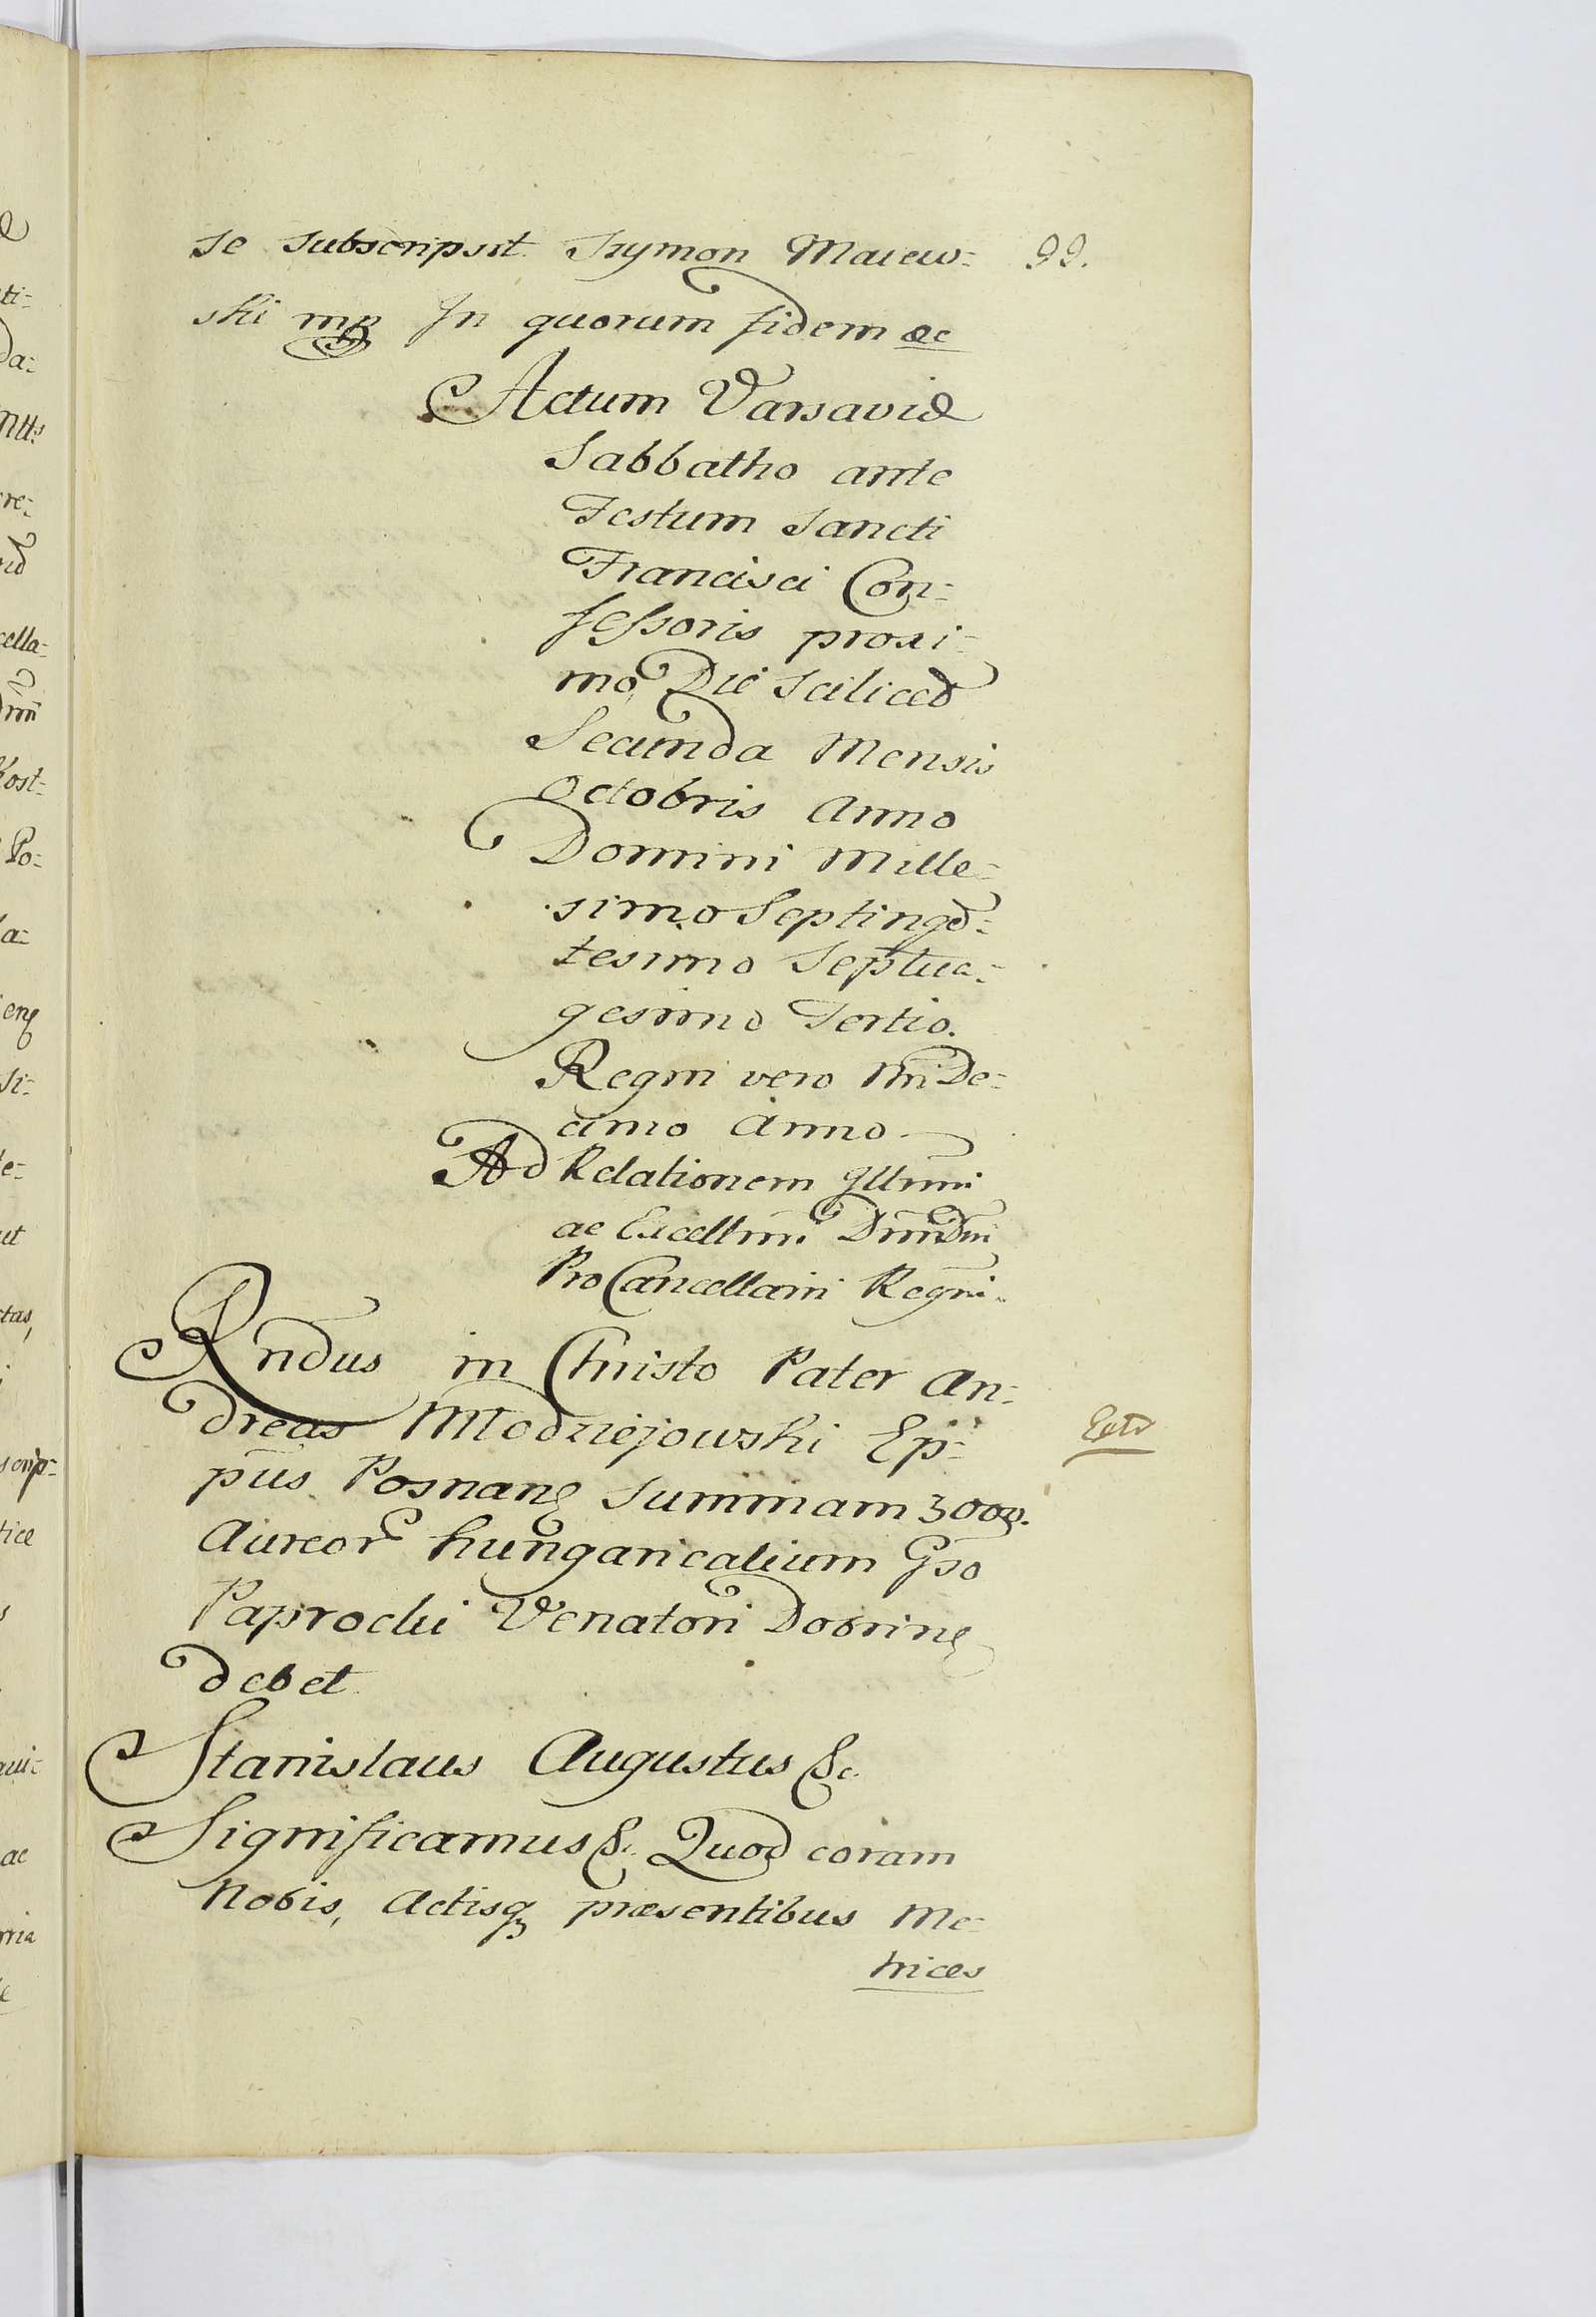 se subscripsit Szymon Maiew= 99.
ski mp In quorum fidem &c
Actum Varsaviæ
Sabbatho ante
Festum Sancti
Francisci Con=
fessoris proxi=
mo, Die scilicet
Secunda Mensis
Octobris Anno
Domini Mille=
simo Septinge=
tesimo Septua=
gesimo Tertio.
Regni vero Nri De=
cimo Anno
Ad Relationem Illrmi
ac Excellmi Dnni Dni
Pro Cancellarii Regni.
Rndus in Christo Pater An=
dreas Młodziejowski Ep=
pus Posnanẽ Summam 3000.
Aureor Hungaricalium Gso
Paprocki Venatori Dobrinẽ
debet
Stanislaus Augustus &c.
Significamus &c. Quod coram
Nobis, Actisq₃ præsentibus Me=
trices